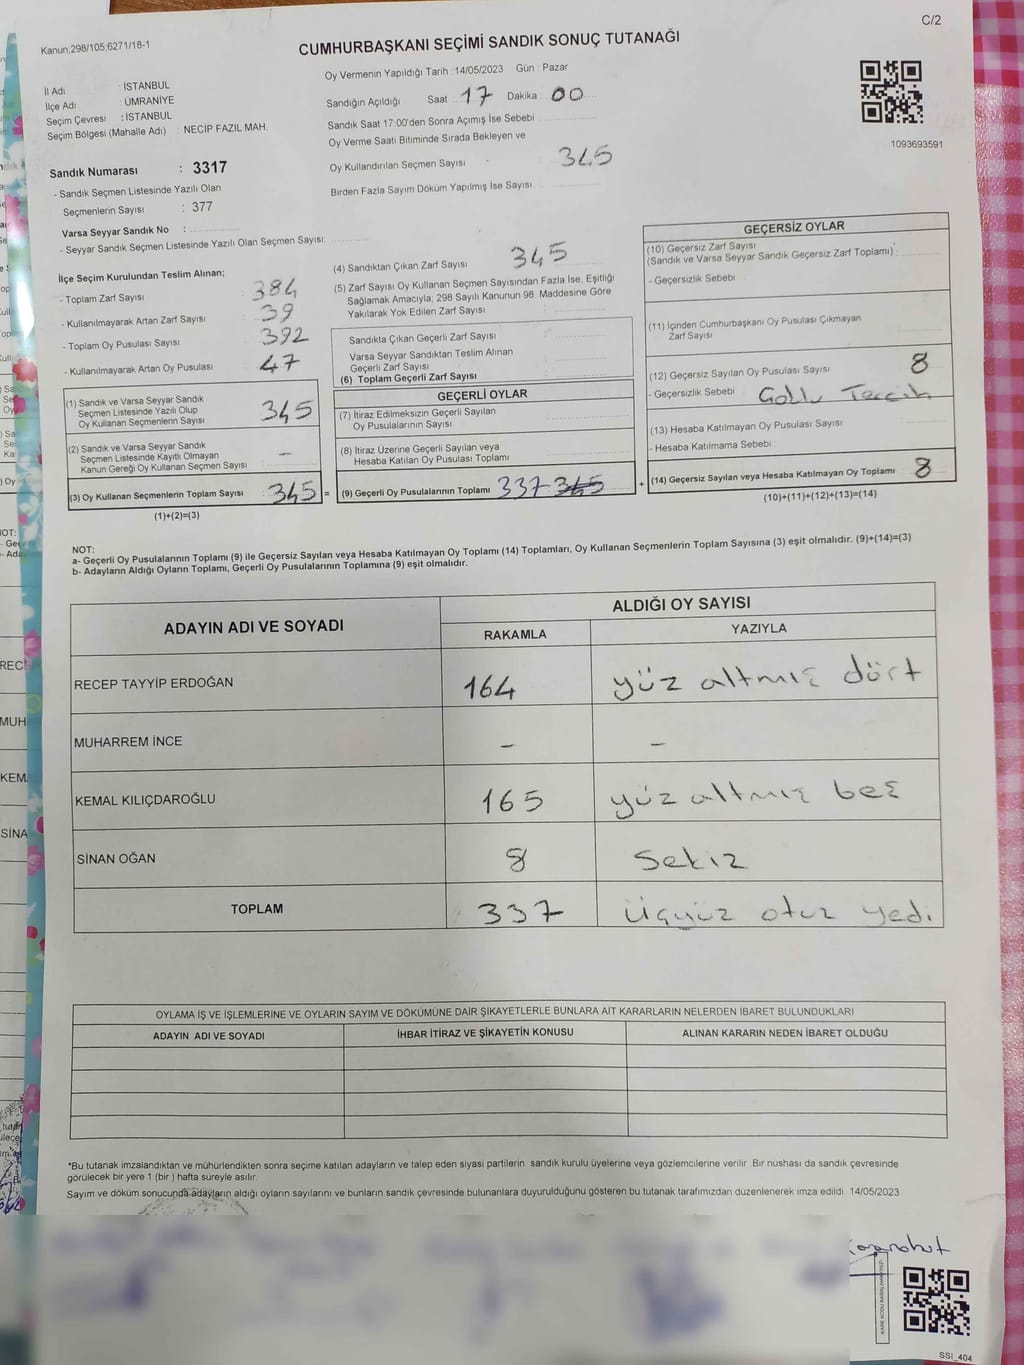 C/2
Kanun;298/105;6271/18-1
CUMHURBAŞKANI SEÇİMİ SANDIK SONUÇ TUTANAĞI
İl Adı : İSTANBUL
İlçe Adı : ÜMRANİYE
Seçim Çevresi : İSTANBUL
Seçim Bölgesi (Mahalle Adı) : NECİP FAZIL MAH.
Sandık Numarası : 3317
- Sandık Seçmen Listesinde Yazılı Olan
Seçmenlerin Sayısı : 377
Varsa Seyyar Sandık No :
- Seyyar Sandık Seçmen Listesinde Yazılı Olan Seçmen Sayısı:
Oy Vermenin Yapıldığı Tarih :14/05/2023 Gün : Pazar
Sandığın Açıldığı Saat : 17 Dakika : 00
Sandık Saat 17:00'den Sonra Açımış İse Sebebi
Oy Verme Saati Bitiminde Sırada Bekleyen ve
Oy Kullandırılan Seçmen Sayısı 345
Birden Fazla Sayım Döküm Yapılmış İse Sayısı
1093693591
İlçe Seçim Kurulundan Teslim Alınan;
- Toplam Zarf Sayısı 384
- Kullanılmayarak Artan Zarf Sayısı 39
- Toplam Oy Pusulası Sayısı 392
- Kullanılmayarak Artan Oy Pusulası 47
(1) Sandık ve Varsa Seyyar Sandık
Seçmen Listesinde Yazılı Olup
Oy Kullanan Seçmenlerin Sayısı 345
(2) Sandık ve Varsa Seyyar Sandık
Seçmen Listesinde Kayıtlı Olmayan
Kanun Gereği Oy Kullanan Seçmen Sayısı –
(3) Oy Kullanan Seçmenlerin Toplam Sayısı : 345 =
(1)+(2)=(3)
(4) Sandıktan Çıkan Zarf Sayısı 345
(5) Zarf Sayısı Oy Kullanan Seçmen Sayısından Fazla İse, Eşitliği
Sağlamak Amacıyla; 298 Sayılı Kanunun 98. Maddesine Göre
Yakılarak Yok Edilen Zarf Sayısı
Sandıkta Çıkan Geçerli Zarf Sayısı
Varsa Seyyar Sandıktan Teslim Alınan
Geçerli Zarf Sayısı
(6) Toplam Geçerli Zarf Sayısı
GEÇERLİ OYLAR
(7) İtiraz Edilmeksizin Geçerli Sayılan
Oy Pusulalarının Sayısı
(8) İtiraz Üzerine Geçerli Sayılan veya
Hesaba Katılan Oy Pusulası Toplamı
(9) Geçerli Oy Pusulalarının Toplamı 337 345 +
GEÇERSİZ OYLAR
(10) Geçersiz Zarf Sayısı
(Sandık ve Varsa Seyyar Sandık Geçersiz Zarf Toplamı) :
- Geçersizlik Sebebi
(11) İçinden Cumhurbaşkanı Oy Pusulası Çıkmayan
Zarf Sayısı
(12) Geçersiz Sayılan Oy Pusulası Sayısı 8
- Geçersizlik Sebebi : Çoklu Tercih
(13) Hesaba Katılmayan Oy Pusulası Sayısı
- Hesaba Katılmama Sebebi
(14) Geçersiz Sayılan veya Hesaba Katılmayan Oy Toplamı 8
(10)+(11)+(12)+(13)=(14)
NOT:
a- Geçerli Oy Pusulalarının Toplamı (9) ile Geçersiz Sayılan veya Hesaba Katılmayan Oy Toplamı (14) Toplamları, Oy Kullanan Seçmenlerin Toplam Sayısına (3) eşit olmalıdır. (9)+(14)=(3)
b- Adayların Aldığı Oyların Toplamı, Geçerli Oy Pusulalarının Toplamına (9) eşit olmalıdır.
ADAYIN ADI VE SOYADI ALDIĞI OY SAYISI
RAKAMLA YAZIYLA
RECEP TAYYİP ERDOĞAN 164 yüz altmış dört
MUHARREM İNCE – –
KEMAL KILIÇDAROĞLU 165 yüz altmış beş
SİNAN OĞAN 8 Sekiz
TOPLAM 337 Üçyüz otuz yedi
OYLAMA İŞ VE İŞLEMLERİNE VE OYLARIN SAYIM VE DÖKÜMÜNE DAİR ŞİKAYETLERLE BUNLARA AİT KARARLARIN NELERDEN İBARET BULUNDUKLARI
ADAYIN ADI VE SOYADI İHBAR İTİRAZ VE ŞİKAYETİN KONUSU ALINAN KARARIN NEDEN İBARET OLDUĞU
*Bu tutanak imzalandıktan ve mühürlendikten sonra seçime katılan adayların ve talep eden siyasi partilerin sandık kurulu üyelerine veya gözlemcilerine verilir .Bir nushası da sandık çevresinde
görülecek bir yere 1 (bir ) hafta süreyle asılır.
Sayım ve döküm sonucunda adayların aldığı oyların sayılarını ve bunların sandık çevresinde bulunanlara duyurulduğunu gösteren bu tutanak tarafımızdan düzenlenerek imza edildi. 14/05/2023
SSI_404